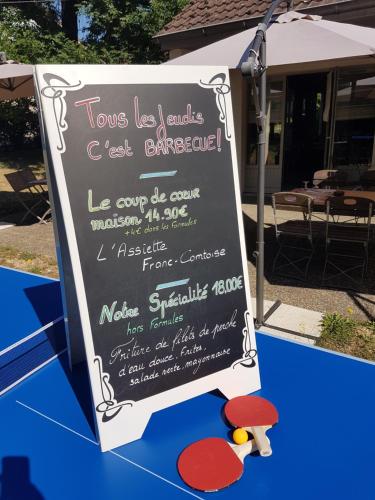 Tous les Jeudis
C'est BARBECUE!
Le coup de coeur
maison 14.90€
+4€ dans les Formules
L'Assiette
Franc-Comtoise
Notre Spécialité 18.00€
hors Formules
Friture de filets de perche
d'eau douce. Frites,
salade verte, mayonnaise